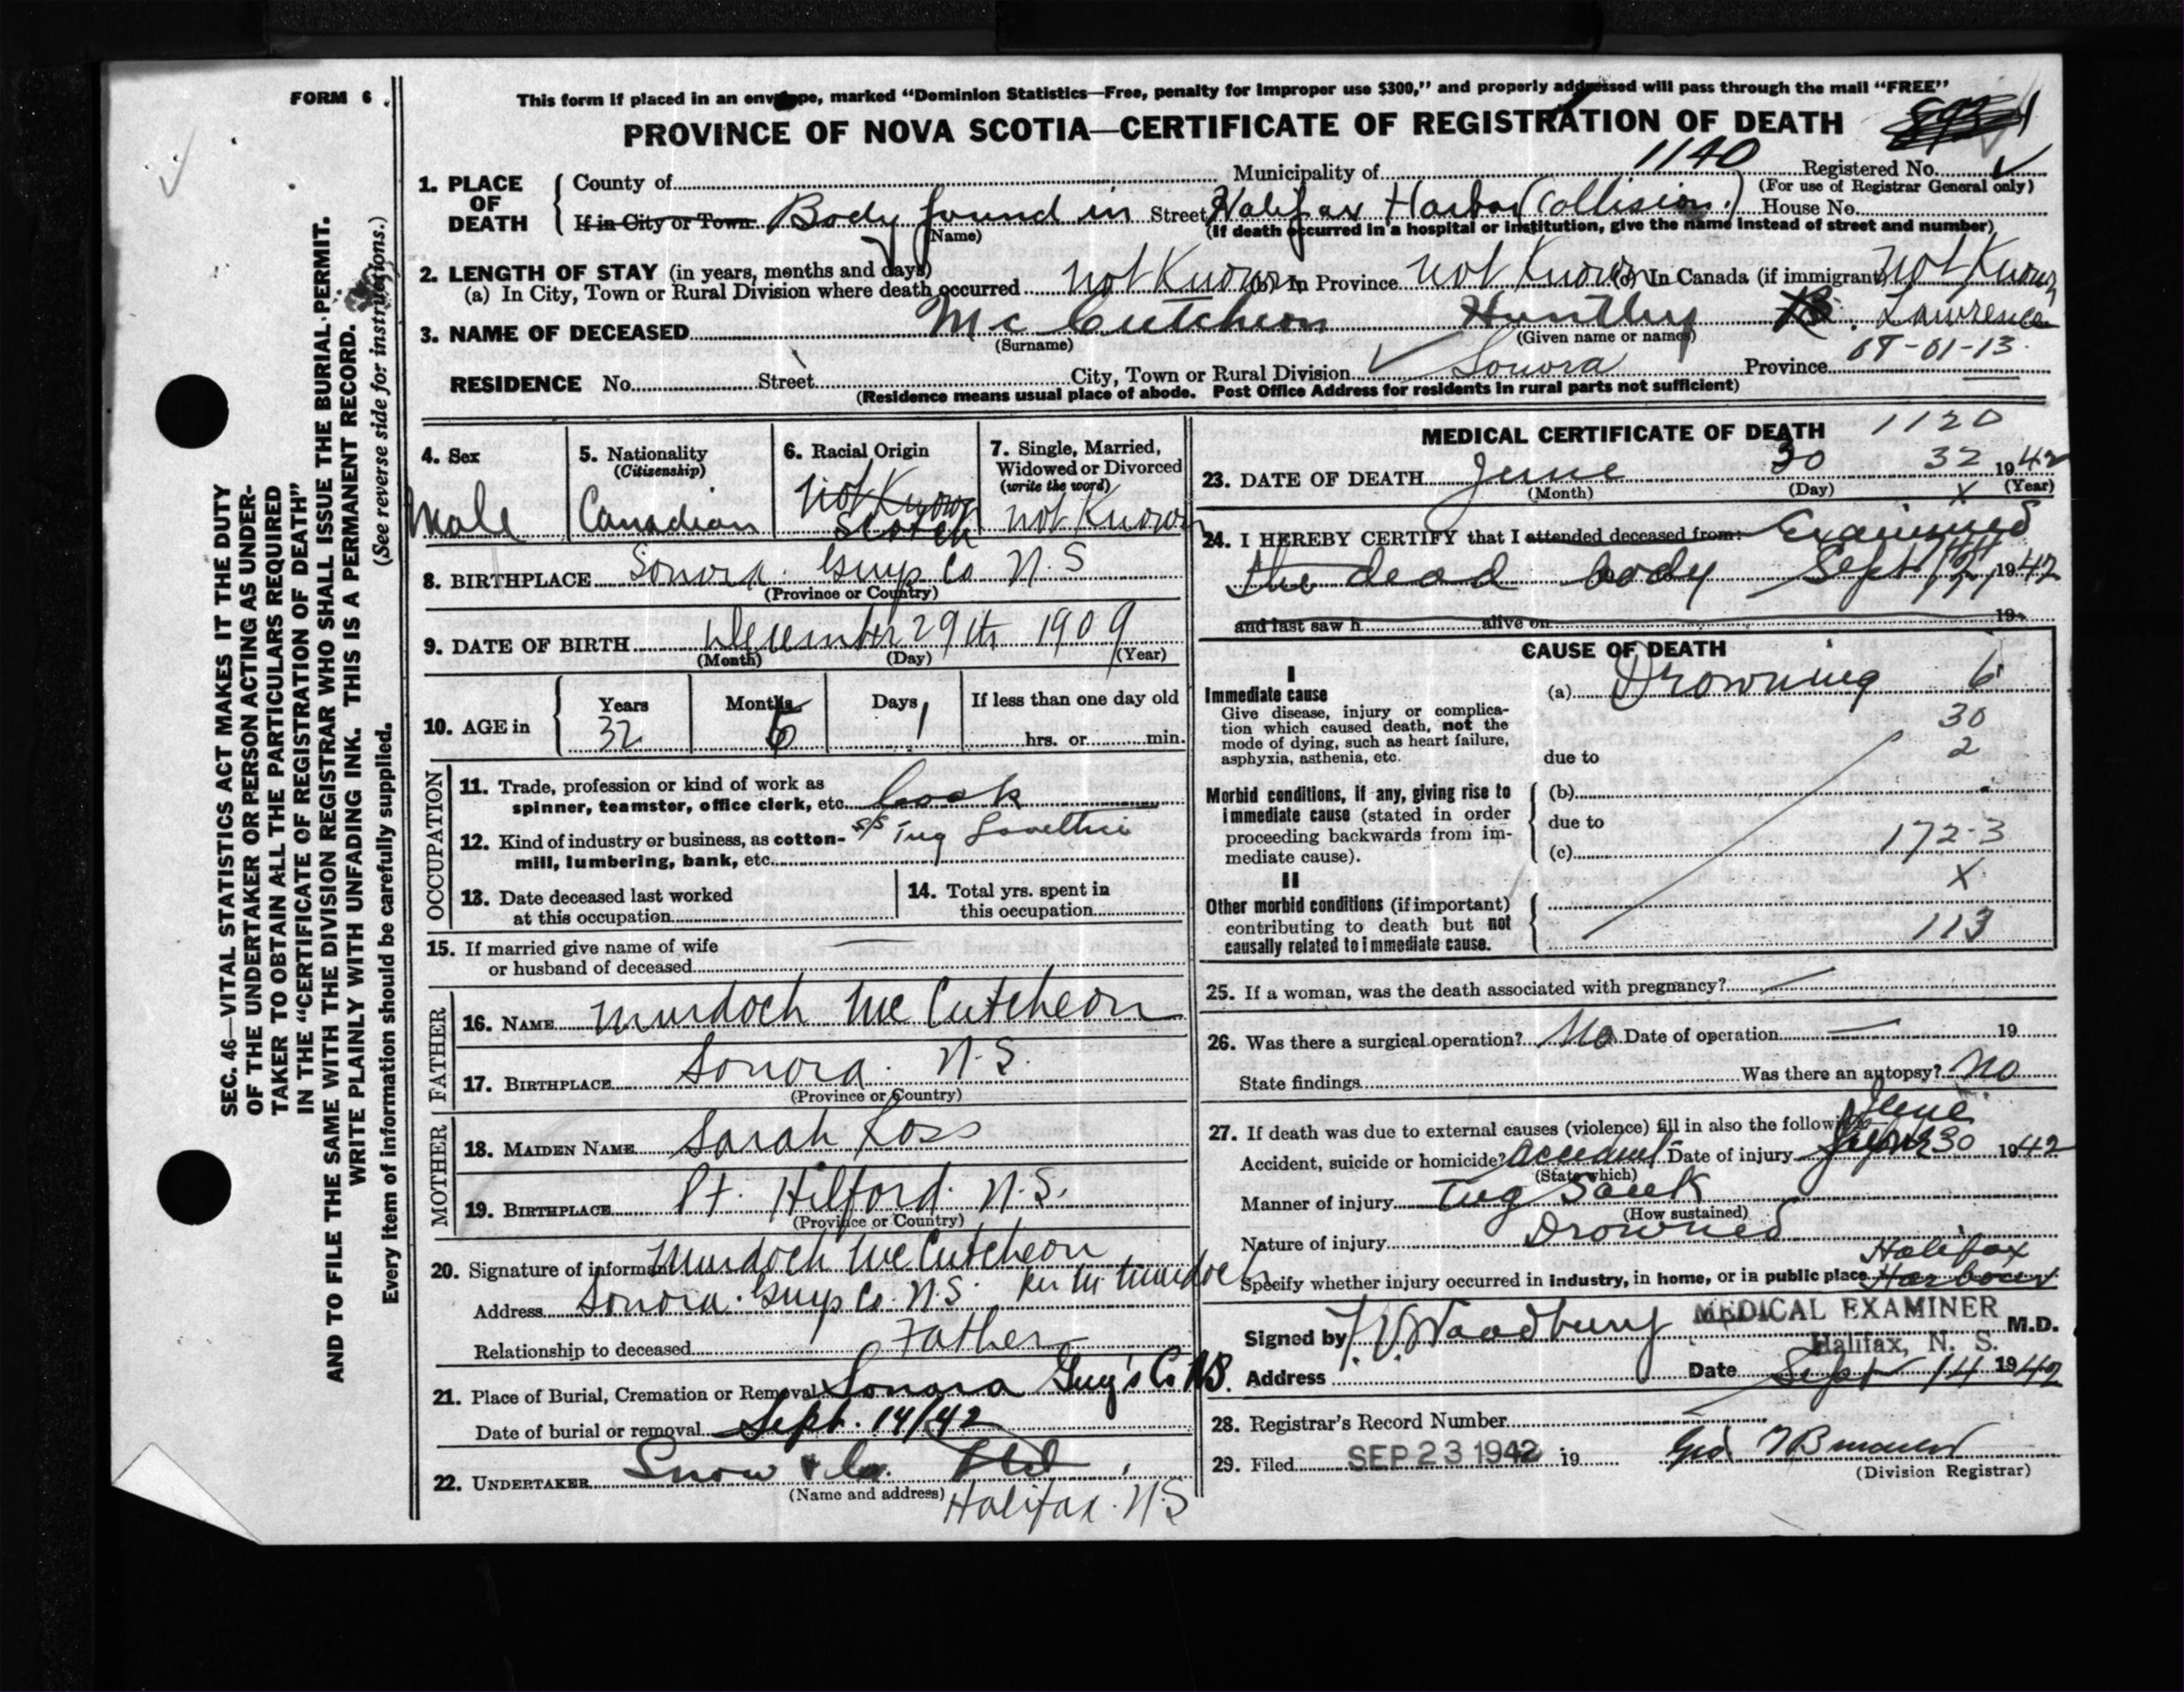 FORM 6
This form if placed in an envelope, marked "Dominion Statistics—Free, penalty for improper use $300," and properly addressed will pass through the mail "FREE"
PROVINCE OF NOVA SCOTIA—CERTIFICATE OF REGISTRATION OF DEATH
1140 Registered No.
(For use of Registrar General only)
1. PLACE OF DEATH
County of Municipality of
If in City or Town Body found in Street Halifax Harbor (Collision.) House No.
(Name) (If death occurred in a hospital or institution, give the name instead of street and number)
2. LENGTH OF STAY (in years, months and days)
(a) In City, Town or Rural Division where death occurred not Known (b) In Province not Known (c) In Canada (if immigrant) not Known
3. NAME OF DECEASED McCutcheon Huntley B. Lawrence
(Surname) (Given name or names)
RESIDENCE No. Street City, Town or Rural Division Sonora Province 09-01-13
(Residence means usual place of abode. Post Office Address for residents in rural parts not sufficient)
SEC. 46—VITAL STATISTICS ACT MAKES IT THE DUTY
OF THE UNDERTAKER OR PERSON ACTING AS UNDER-
TAKER TO OBTAIN ALL THE PARTICULARS REQUIRED
IN THE "CERTIFICATE OF REGISTRATION OF DEATH"
AND TO FILE THE SAME WITH THE DIVISION REGISTRAR WHO SHALL ISSUE THE BURIAL PERMIT.
WRITE PLAINLY WITH UNFADING INK. THIS IS A PERMANENT RECORD.
Every item of information should be carefully supplied. (See reverse side for instructions.)
4. Sex
Male
5. Nationality
(Citizenship)
Canadian
6. Racial Origin
not Known
Scotch
7. Single, Married,
Widowed or Divorced
(write the word)
not Known
8. BIRTHPLACE Sonora. Guys Co N.S
(Province or Country)
9. DATE OF BIRTH December 29th 1909
(Month) (Day) (Year)
10. AGE in
Years Months Days If less than one day old
32 6 1 hrs. or min.
OCCUPATION
11. Trade, profession or kind of work as
spinner, teamster, office clerk, etc. Cook
12. Kind of industry or business, as cotton-
mill, lumbering, bank, etc. S/S Tug
13. Date deceased last worked
at this occupation
14. Total yrs. spent in
this occupation
15. If married give name of wife
or husband of deceased
FATHER
16. NAME Murdoch McCutcheon
17. BIRTHPLACE Sonora. N.S.
(Province or Country)
MOTHER
18. MAIDEN NAME Sarah Ross
19. BIRTHPLACE Pt. Hilford. N.S.
(Province or Country)
20. Signature of informant Murdoch McCutcheon
Address Sonora. Guys Co. N.S.
Relationship to deceased Father
21. Place of Burial, Cremation or Removal Sonora Guy's Co NS.
Date of burial or removal Sept. 14/42
22. UNDERTAKER Snow & Co. Ltd
(Name and address) Halifax. N.S
MEDICAL CERTIFICATE OF DEATH 1120
23. DATE OF DEATH June 30 32 1942
(Month) (Day) (Year)
24. I HEREBY CERTIFY that I attended deceased from: Examined
the dead body Sept 1942
and last saw h alive on 19
CAUSE OF DEATH
I
Immediate cause
Give disease, injury or complica-
tion which caused death, not the
mode of dying, such as heart failure,
asphyxia, asthenia, etc.
(a) Drowning 6
30
2
due to
Morbid conditions, if any, giving rise to
immediate cause (stated in order
proceeding backwards from im-
mediate cause).
(b)
due to
(c) 172-3
X
II
Other morbid conditions (if important)
contributing to death but not
causally related to immediate cause.
113
25. If a woman, was the death associated with pregnancy?
26. Was there a surgical operation? No Date of operation 19
State findings Was there an autopsy? No
27. If death was due to external causes (violence) fill in also the following:
Accident, suicide or homicide? accident Date of injury June 30 1942
(State which)
Manner of injury Tug Sank
(How sustained)
Nature of injury Drowned
Specify whether injury occurred in industry, in home, or in public place Halifax Harbour
Signed by Woodbury MEDICAL EXAMINER M.D.
Halifax, N. S.
Address Date Sept 14 1942
28. Registrar's Record Number
29. Filed SEP 23 1942 19
(Division Registrar)